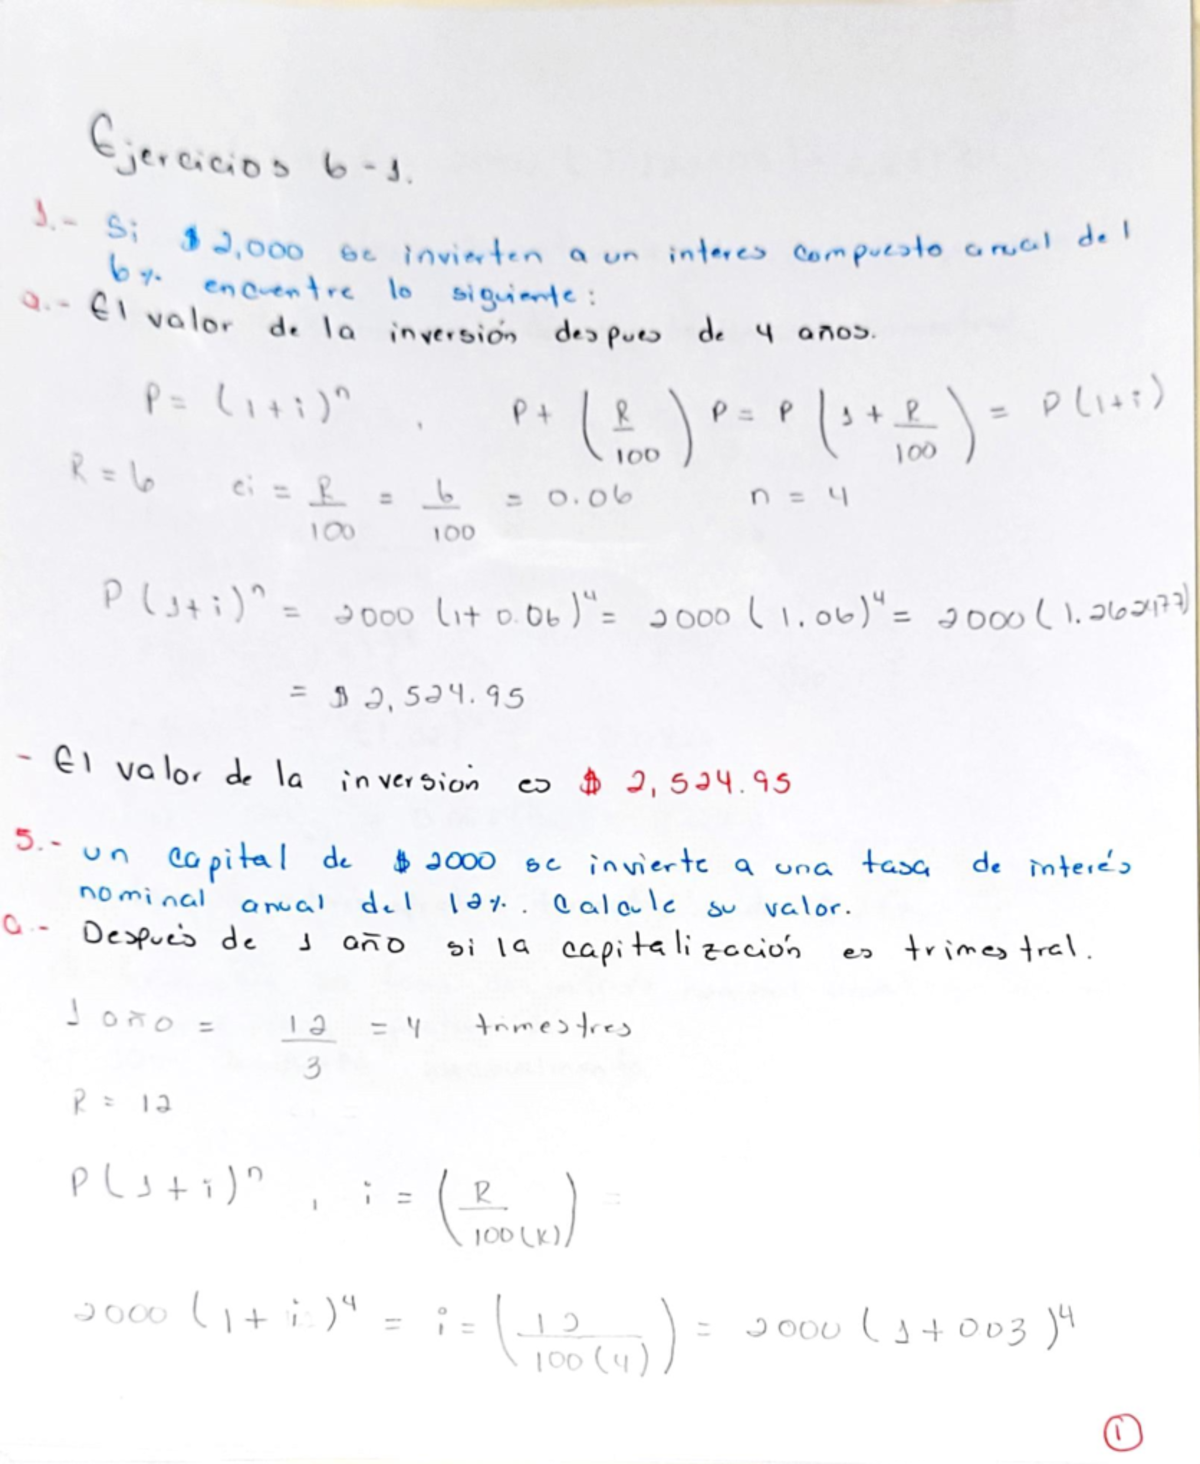 Ejercicios 6-1.
1.- Si $2,000 se invierten a un interes compuesto anual del
6% encuentre lo siguiente:
a.- El valor de la inversión despues de 4 años.
P = (1+i)^n , P + (R/100) P = P (1 + R/100) = P(1+i)
R = 6 ci = R/100 = 6/100 = 0.06 n = 4
P(1+i)^n = 2000 (1+0.06)^4 = 2000 (1.06)^4 = 2000 (1.262477)
= $2,524.95
- El valor de la inversión es $ 2,524.95
5.- un capital de $2000 se invierte a una tasa de interés
nominal anual del 12%. Calcule su valor.
a.- Después de 1 año si la capitalización es trimestral.
1 año = 12/3 = 4 trimestres
R = 12
P(1+i)^n , i = (R/100(K)) =
2000 (1+i)^4 = i = (12/100(4)) = 2000 (1+003)^4
1